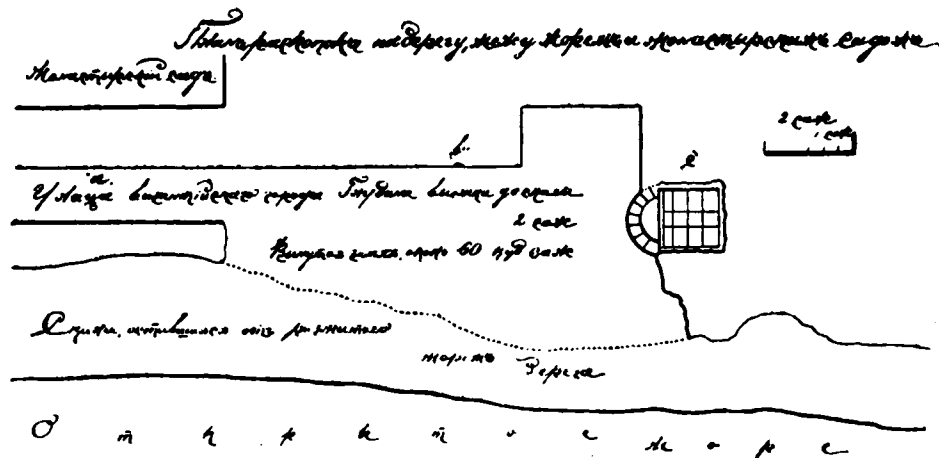 Планъ раскопки на берегу, межу моремъ и монастирскимъ садомъ
Монастирскій садъ
2 саж
саж
в.
а.
Улица византійскаго города Глубина выемки до скалы
2 саж
Вынутая земля, около 60 куб саж
Скала, оставшаяся отъ размытаго
моремъ берега
Открытое море